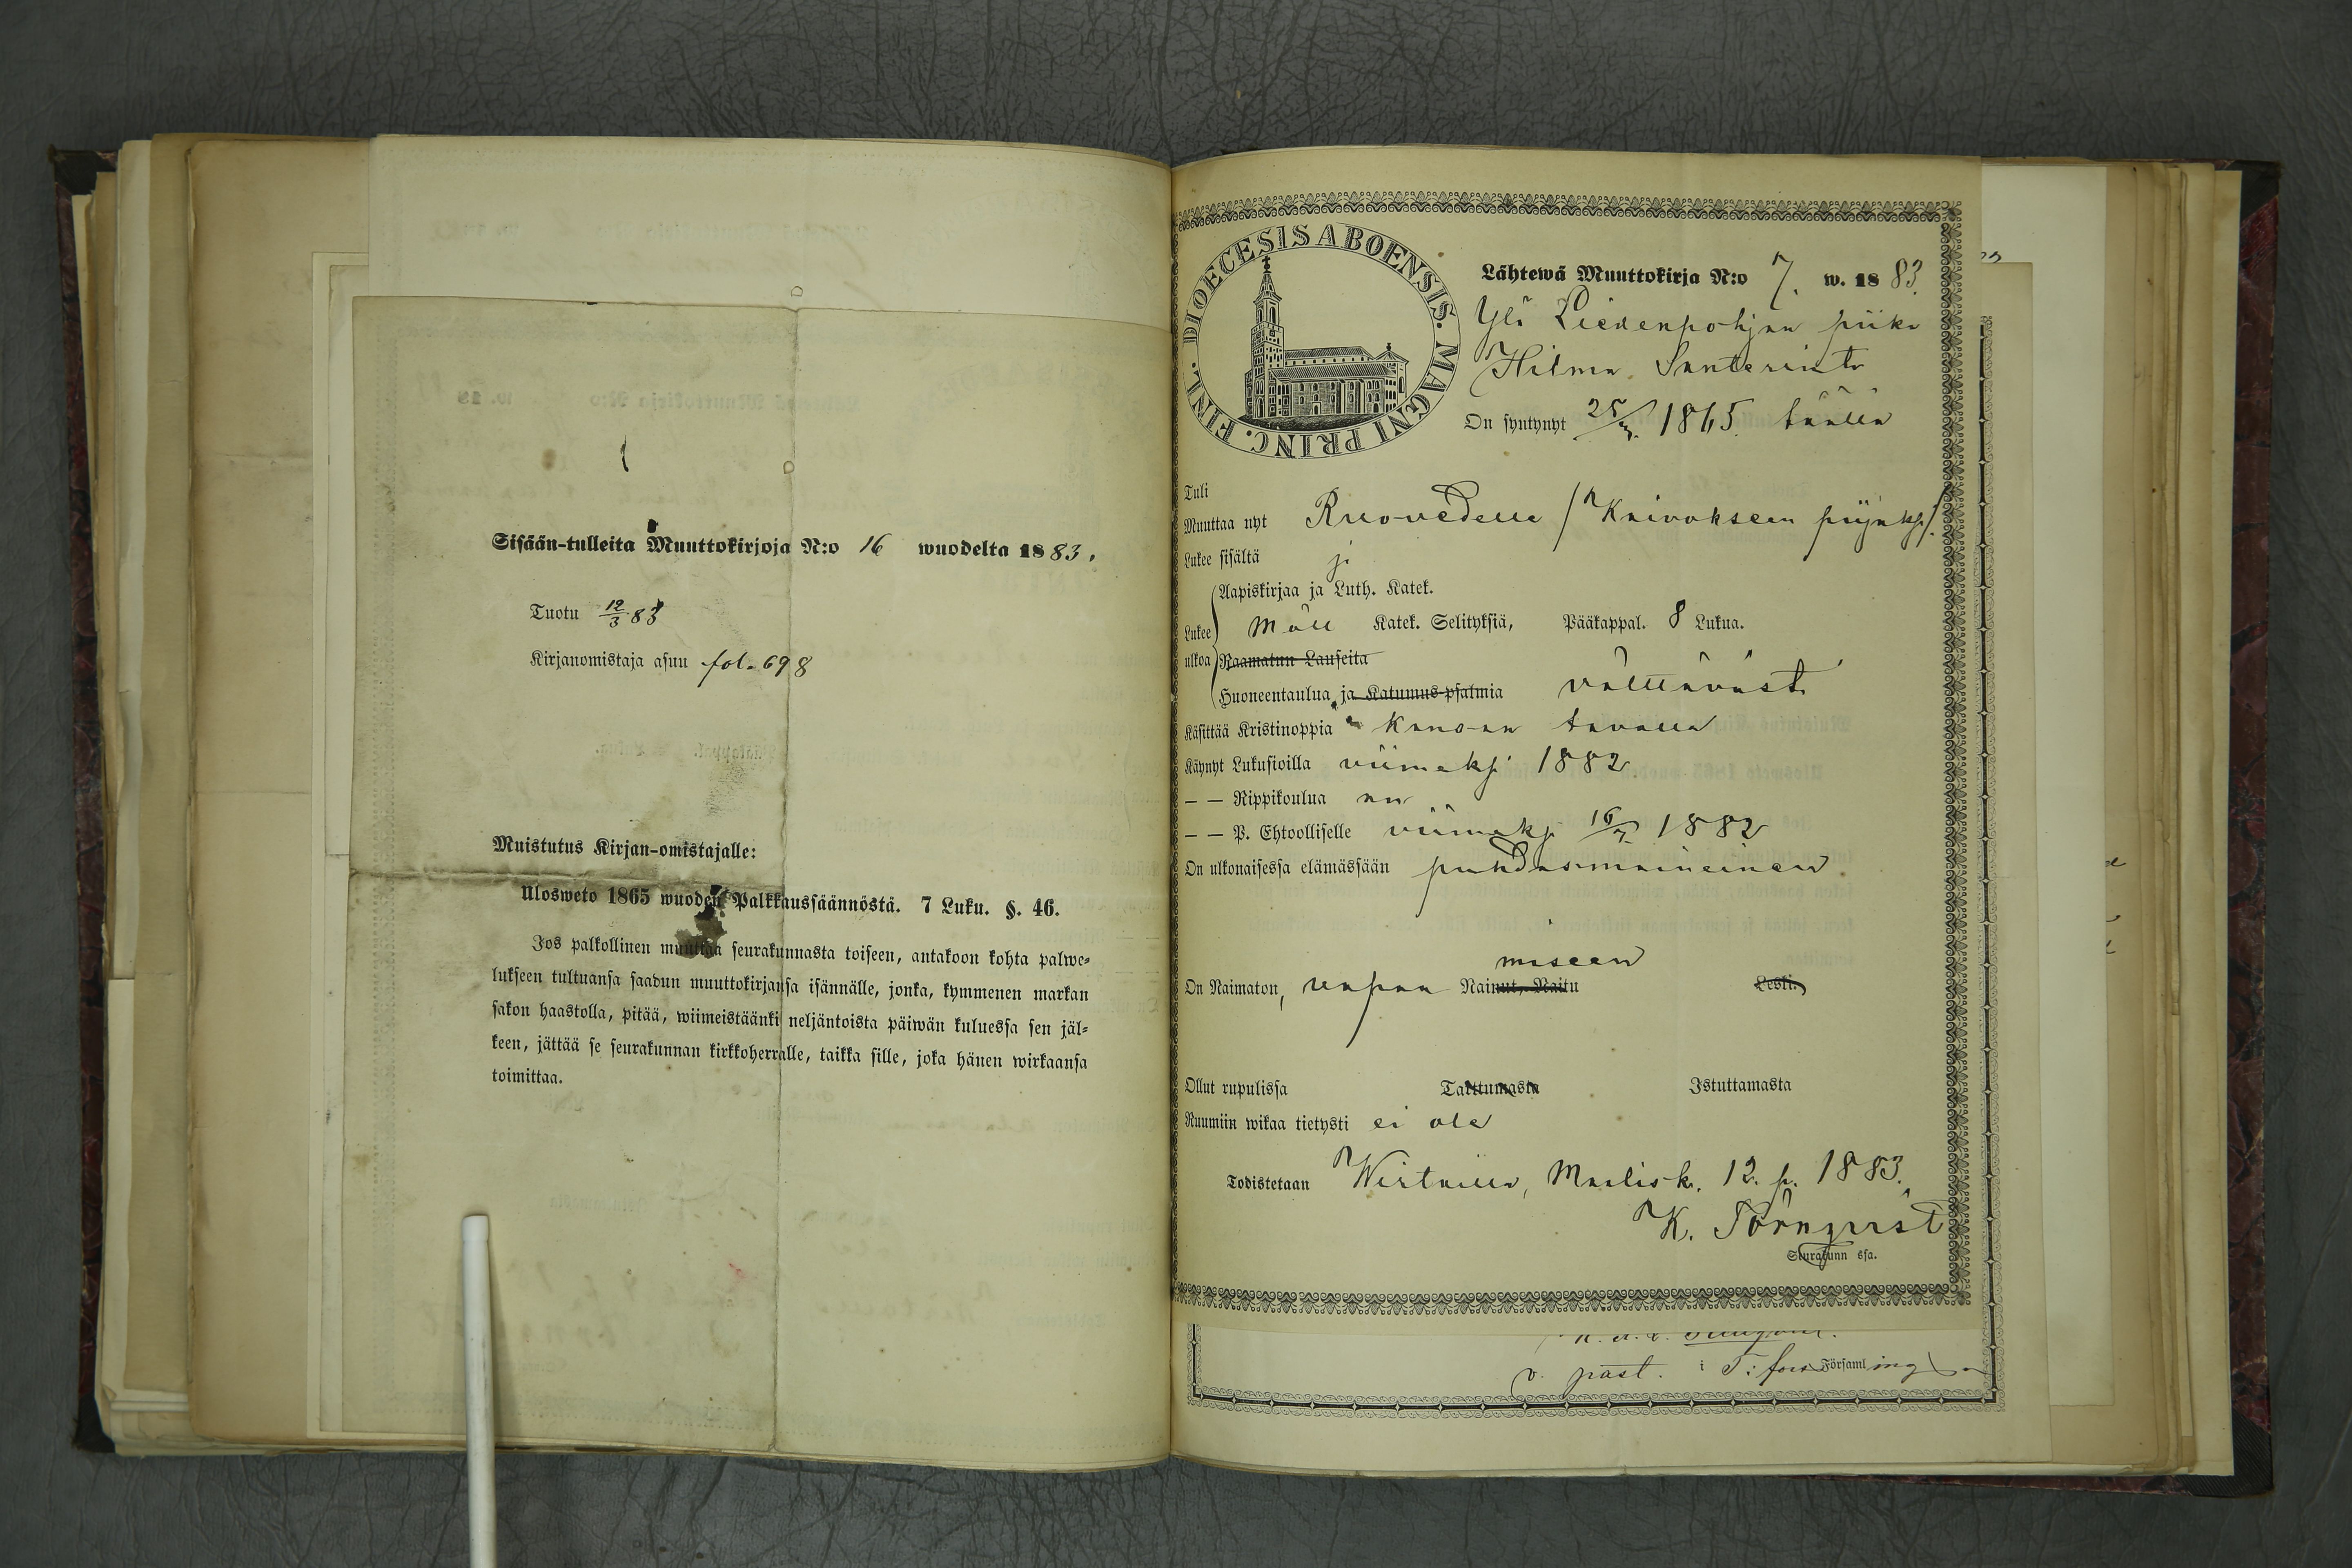 Sisään-tulleita Muuttokirjoja N:o 16 wuodelta 1883.
Tuotu 12/3 83
Kirjanomistaja asuu fol. 698
Muistutus Kirjan-omistajalle:
Ulosweto 1865 wuoden Palkkaussäännöstä. 7 Luku. §. 46.
Jos palkollinen muuttaa seurakunnasta toiseen, antakoon kohta palwe-
lukseen tultuansa saadun muuttokirjansa isännälle, jonka, kymmenen markan
sakon haastolla, pitää, wiimeistäänki neljäntoista päiwän kuluessa sen jäl-
keen, jättää se seurakunnan kirkkoherralle, taikka sille, joka hänen wirkaansa
toimittaa.
DIOECESIS ABOENSIS. MAGNI PRINC. FINL.
Lähtewä Muuttokirja N:o 7. w. 1883.
Yli Liedenpohjan piika
Hilma Santerint.
On syntynyt 25/3. 1865 täällä
Tuli
Muuttaa nyt Ruovedelle /Kaivokseen piijaksi/.
Lukee sisältä
Aapiskirjaa ja Luth. Katek.
Lukee ulkoa Möll Katek. Selityksiä, Pääkappal. 8 Lukua.
Raamatun Lauseita
Huoneentaulua, ja Katumus-psalmia välttävästi
Käsittää Kristinoppia kansan tavalla
Käynyt Lukusioilla viimeksi 1882
— — Rippikoulua on
— — P. Ehtoolliselle viimeksi 16/7 1882
On ulkonaisessa elämässään puhdasmaineinen
miseen
On Naimaton, vapaa Nainut, Naitu Leski.
Ollut rupulissa Tarttumasta Istuttamasta
Ruumiin wikaa tietysti ei ole
Todistetaan Wirtailla, Maalisk. 12. p. 1883.
K. Törnqvist
Seurakunn ssa.
v. past. i T: fors Församling